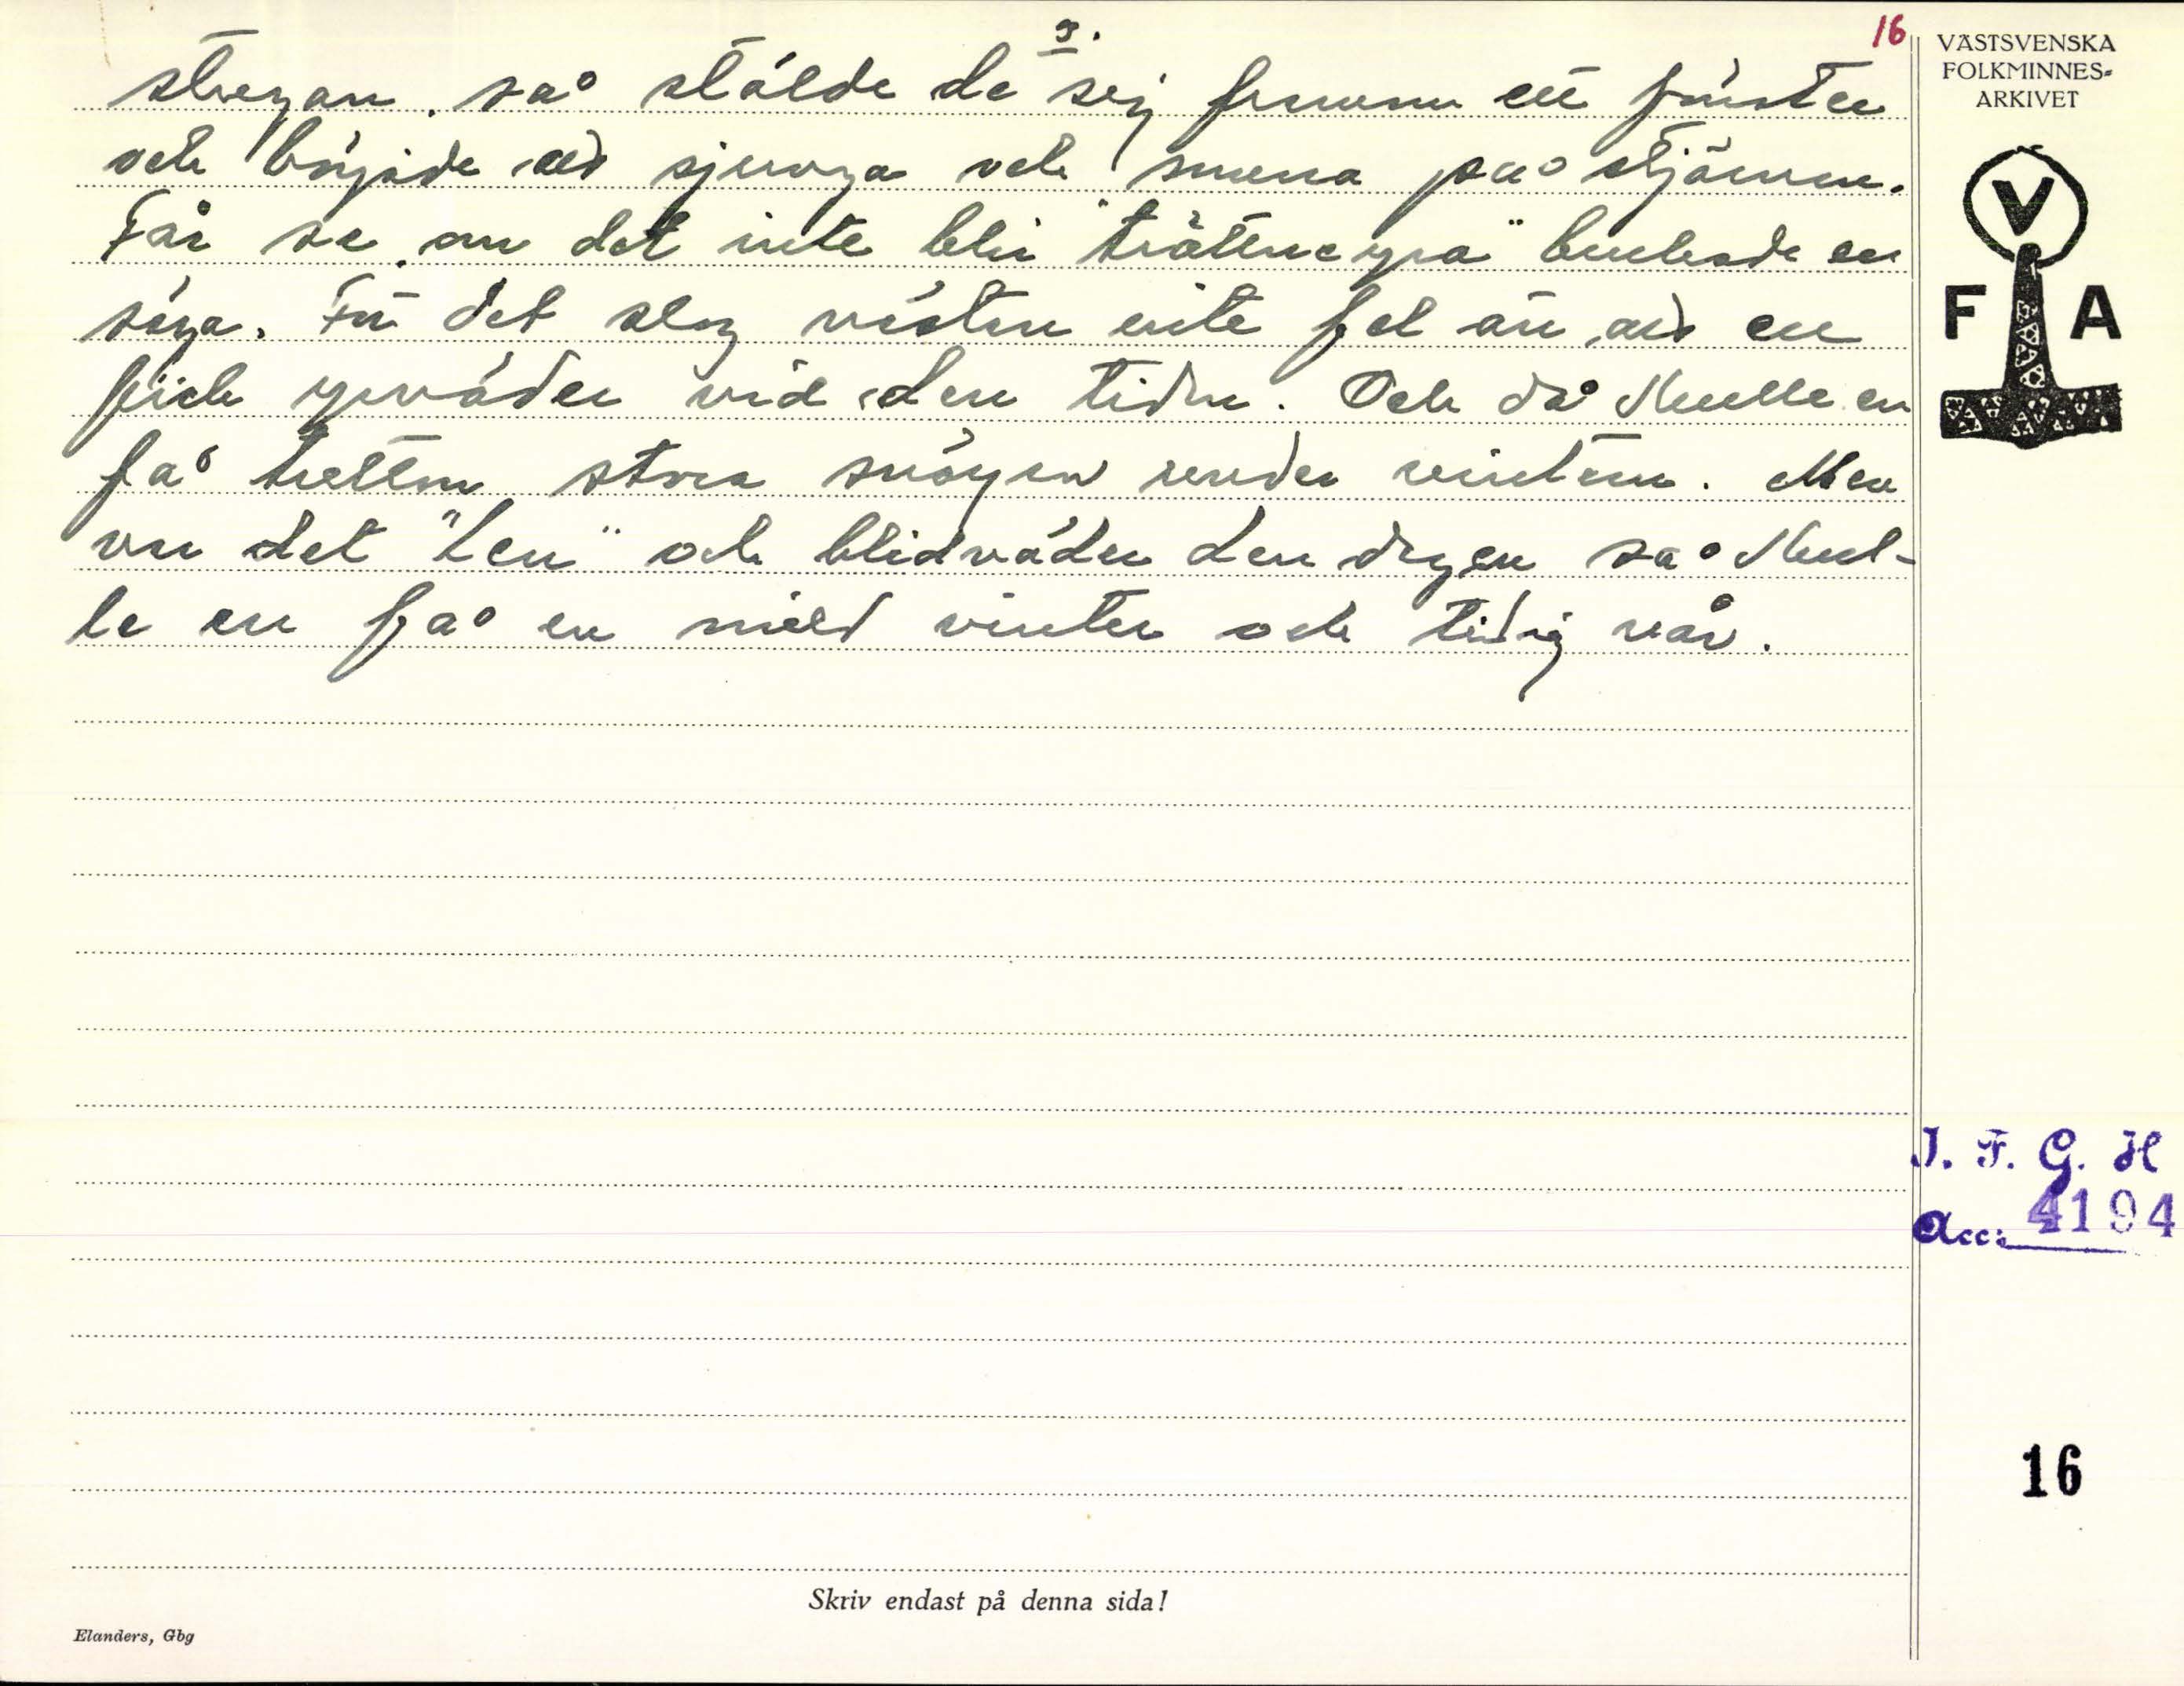 3.
16
stugan, så stälde de sej framm ett fönster
och började att sjunga och snurra på stjärnan.
Får se om det inte blir "trättneyra" brukade en
säga. För det slog nästan inte fel än att en
fick yrväder vid den tiden. Och då skulle en
få tretton stora snöyror under vintern. Men
var det "Len" och blidväder den dagen så skul-
le en få en mild vinter och tidig vår.
VÄSTSVENSKA
FOLKMINNES-
ARKIVET
V
F A
I. F. G. H
Acc: 4194
16
Skriv endast på denna sida!
Elanders, Gbg